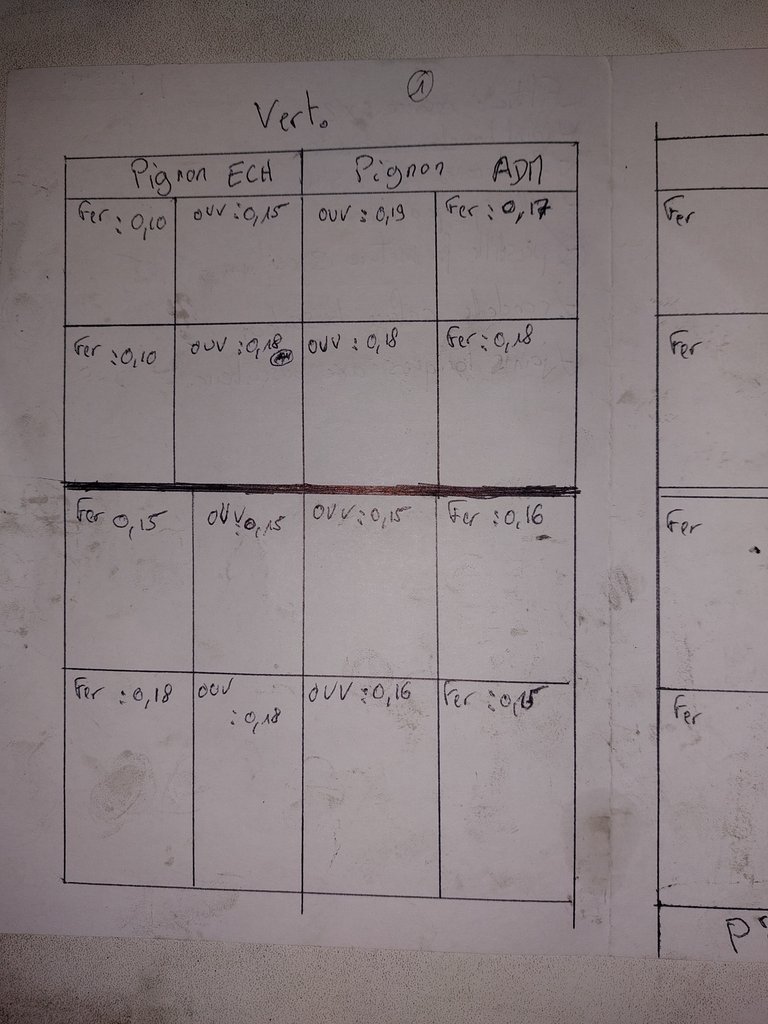 ①
Vert.
Pignon ECH Pignon ADM
Fer : 0,10 OUV : 0,15 OUV : 0,19 Fer : 0,17 Fer
Fer : 0,10 OUV : 0,18 OUV : 0,18 Fer : 0,18 Fer
Fer 0,15 OUV : 0,15 OUV : 0,15 Fer : 0,16 Fer
Fer : 0,18 OUV : 0,18 OUV : 0,16 Fer : 0,15 Fer